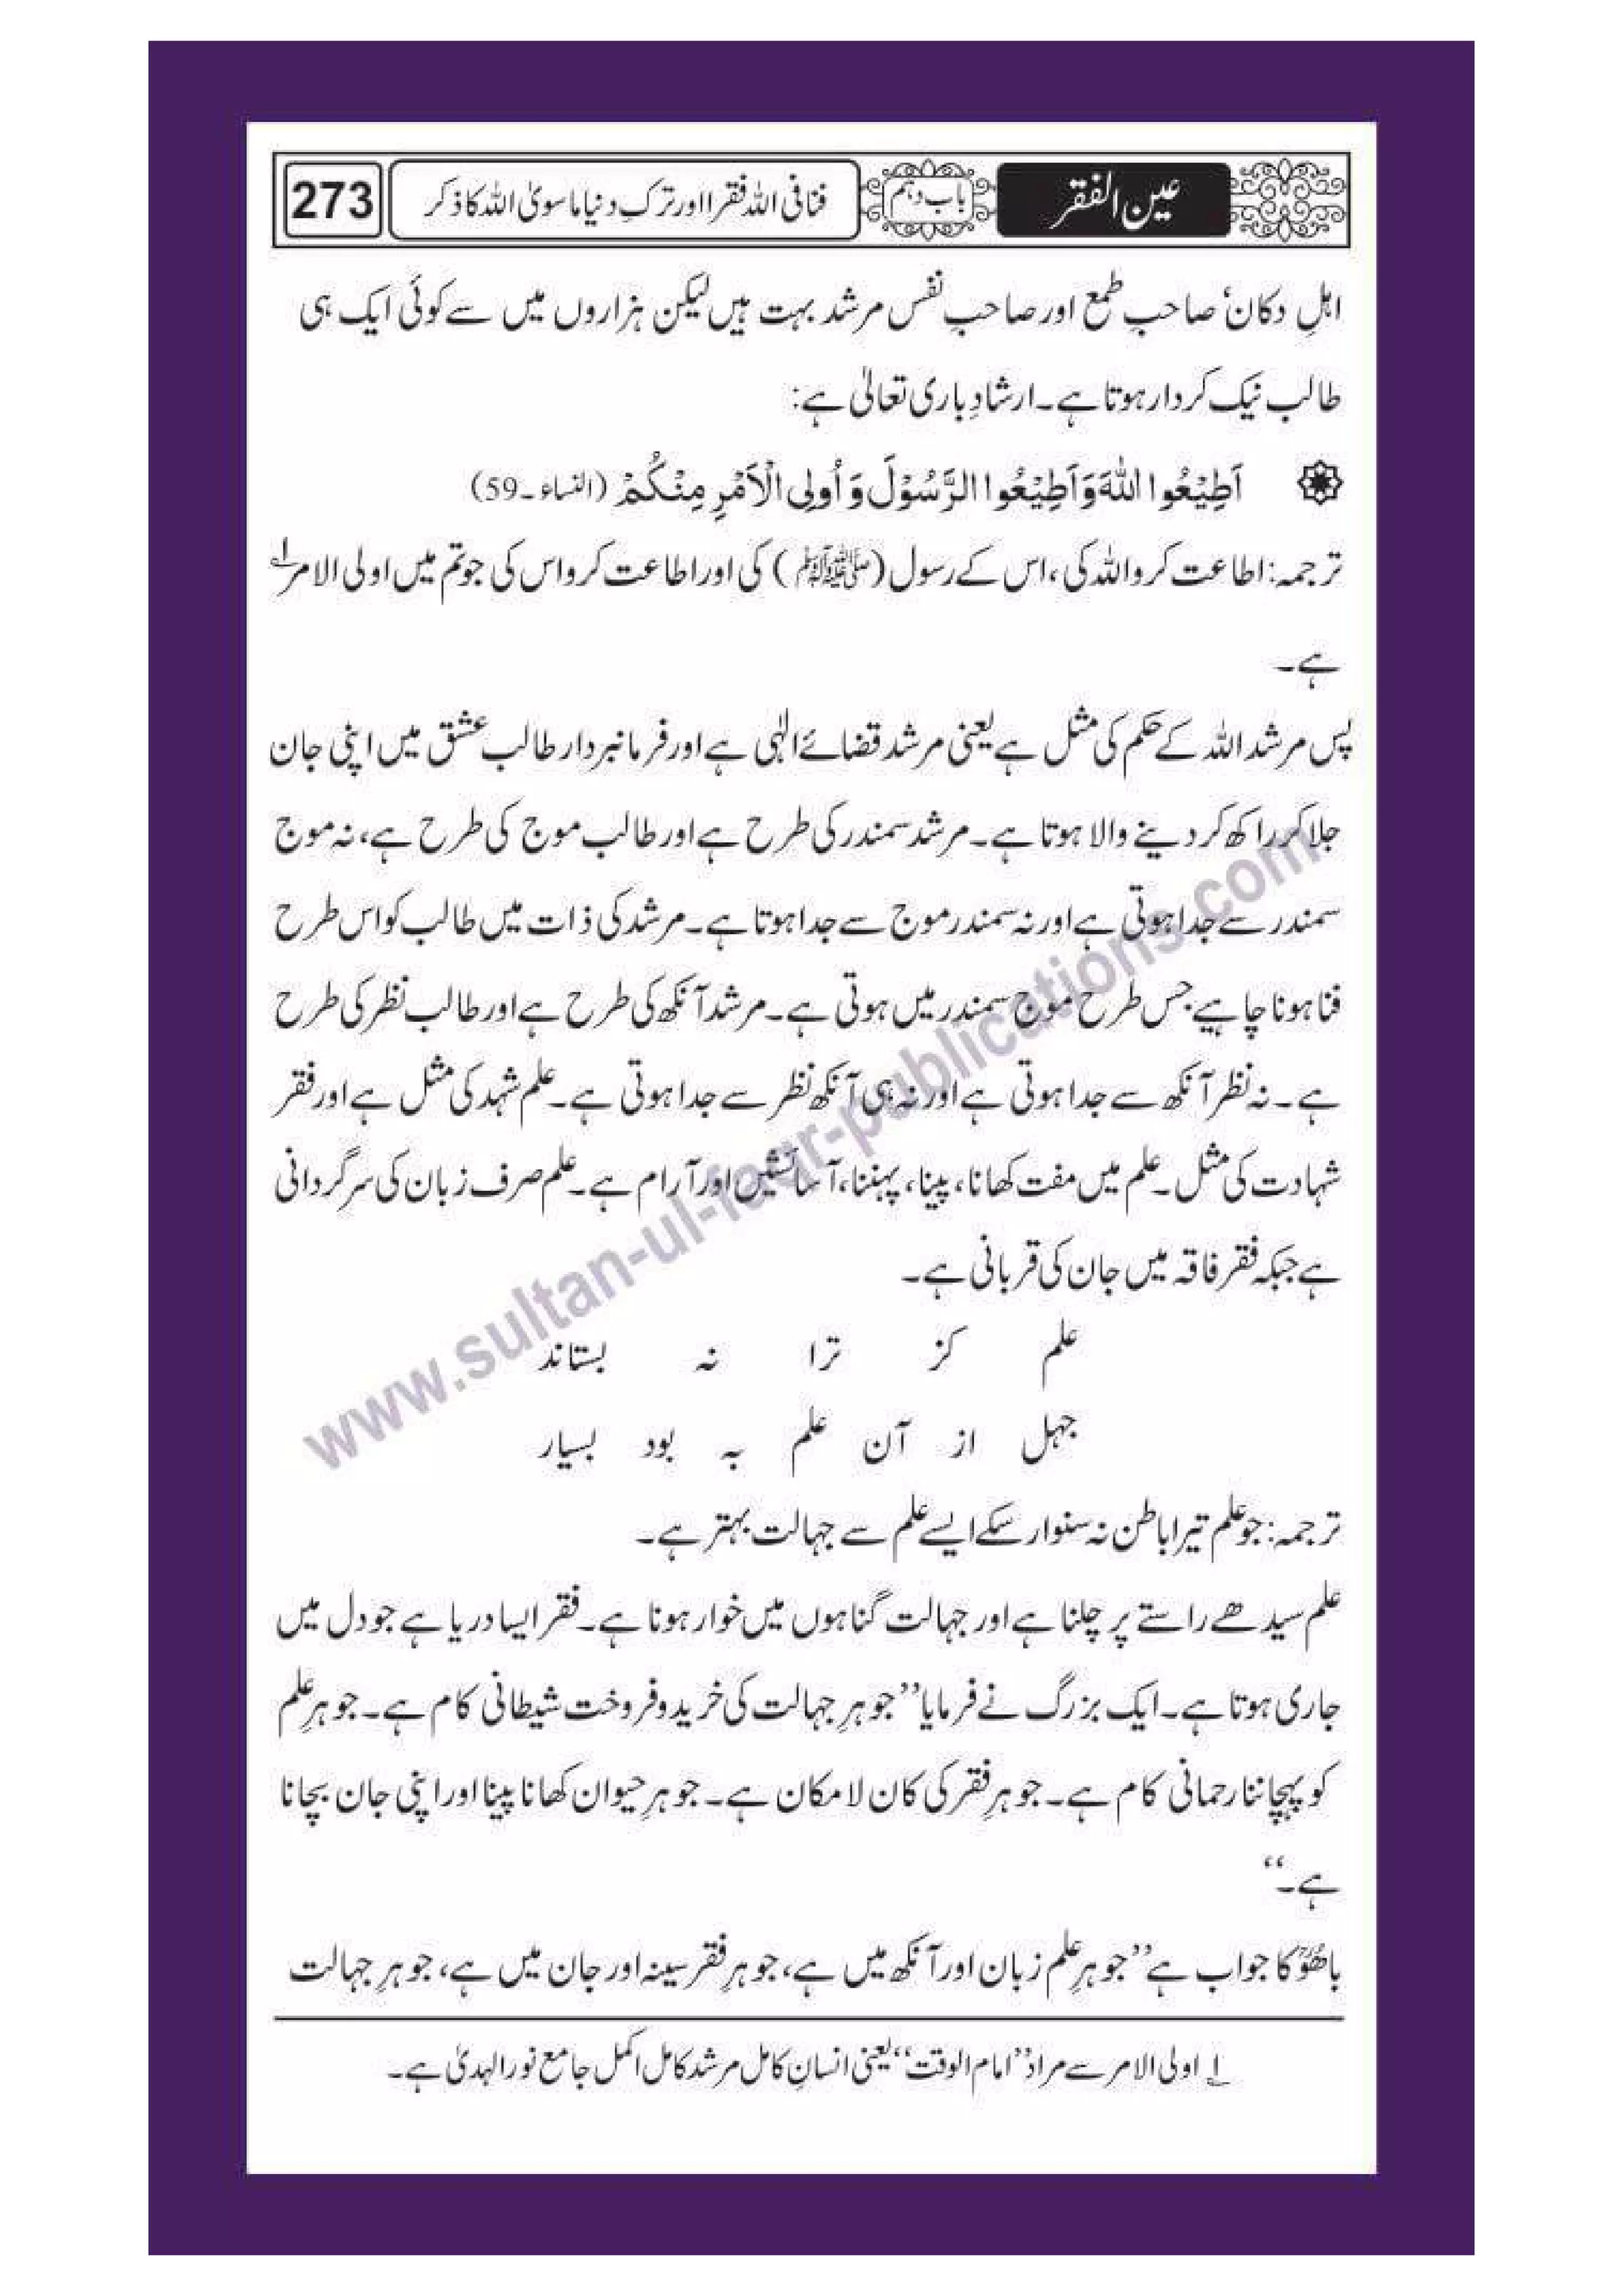 عین الفقر باب دہم فنا فی اللہ فقرا اور ترکِ دنیا ما سویٰ اللہ کا ذکر 273
اہلِ دکان، صاحبِ طمع اور صاحبِ نفس مرشد بہت ہیں لیکن ہزاروں میں سے کوئی ایک ہی
طالب نیک کردار ہوتا ہے۔ ارشادِ باری تعالیٰ ہے:
اَطِیْعُوا اللّٰهَ وَ اَطِیْعُوا الرَّسُوْلَ وَ اُولِی الْاَمْرِ مِنْكُمْ (النساء۔59)
ترجمہ: اطاعت کرو اللہ کی، اس کے رسول (ﷺ) کی اور اطاعت کرو اس کی جو تم میں اولی الامر ۱
ہے۔
پس مرشد اللہ کے حکم کی مثل ہے یعنی مرشد قضائے الٰہی ہے اور فرمانبردار طالب عشق میں اپنی جان
جلا کر راکھ کر دینے والا ہوتا ہے۔ مرشد سمندر کی طرح ہے اور طالب موج کی طرح ہے، نہ موج
سمندر سے جدا ہوتی ہے اور نہ سمندر موج سے جدا ہوتا ہے۔ مرشد کی ذات میں طالب کو اس طرح
فنا ہونا چاہیے جس طرح موج سمندر میں ہوتی ہے۔ مرشد آنکھ کی طرح ہے اور طالب نظر کی طرح
ہے۔ نہ نظر آنکھ سے جدا ہوتی ہے اور نہ ہی آنکھ نظر سے جدا ہوتی ہے۔ علم شہد کی مثل ہے اور فقر
شہادت کی مثل۔ علم میں مفت کھانا، پینا، پہننا، آسائشیں اور آرام ہے۔ علم صرف زبان کی سرگردانی
ہے جبکہ فقر فاقہ میں جان کی قربانی ہے۔
علم کز ترا نہ بستاند
جہل از آن علم بہ بود بسیار
ترجمہ: جو علم تیرا باطن نہ سنوار سکے ایسے علم سے جہالت بہتر ہے۔
علم سیدھے راستے پر چلنا ہے اور جہالت گناہوں میں خوار ہونا ہے۔ فقر ایسا دریا ہے جو دل میں
جاری ہوتا ہے۔ ایک بزرگ نے فرمایا ’’جوہرِ جہالت کی خرید و فروخت شیطانی کام ہے۔ جوہرِ علم
کو پہچاننا رحمانی کام ہے۔ جوہرِ فقر کی کان لامکان ہے۔ جوہرِ حیوان کھانا پینا اور اپنی جان بچانا
ہے۔‘‘
باھُوؒ کا جواب ہے ’’جوہرِ علم زبان اور آنکھ میں ہے، جوہرِ فقر سینہ اور جان میں ہے، جوہرِ جہالت
۱ اولی الامر سے مراد ’’امام الوقت‘‘ یعنی انسانِ کامل مرشد کامل اکمل جامع نور الہدیٰ ہے۔
www.sultan-ul-faqr-publications.com